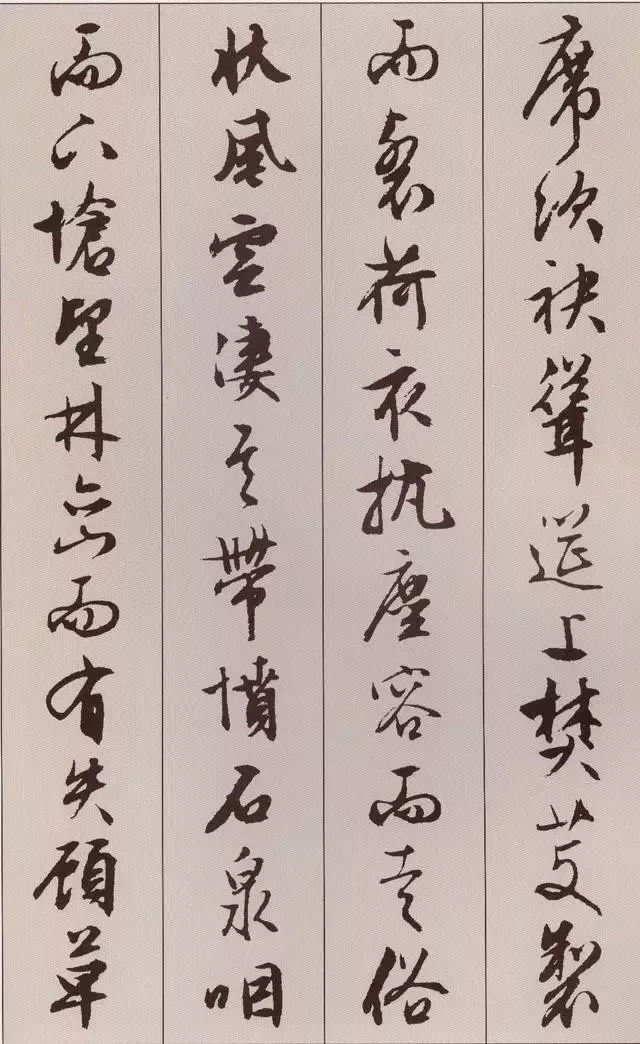 席次袂聳筵上焚芰製
而裂荷衣抗塵容而走俗
狀風雲悽其帶憤石泉咽
而下愴望林巒而有失顧草